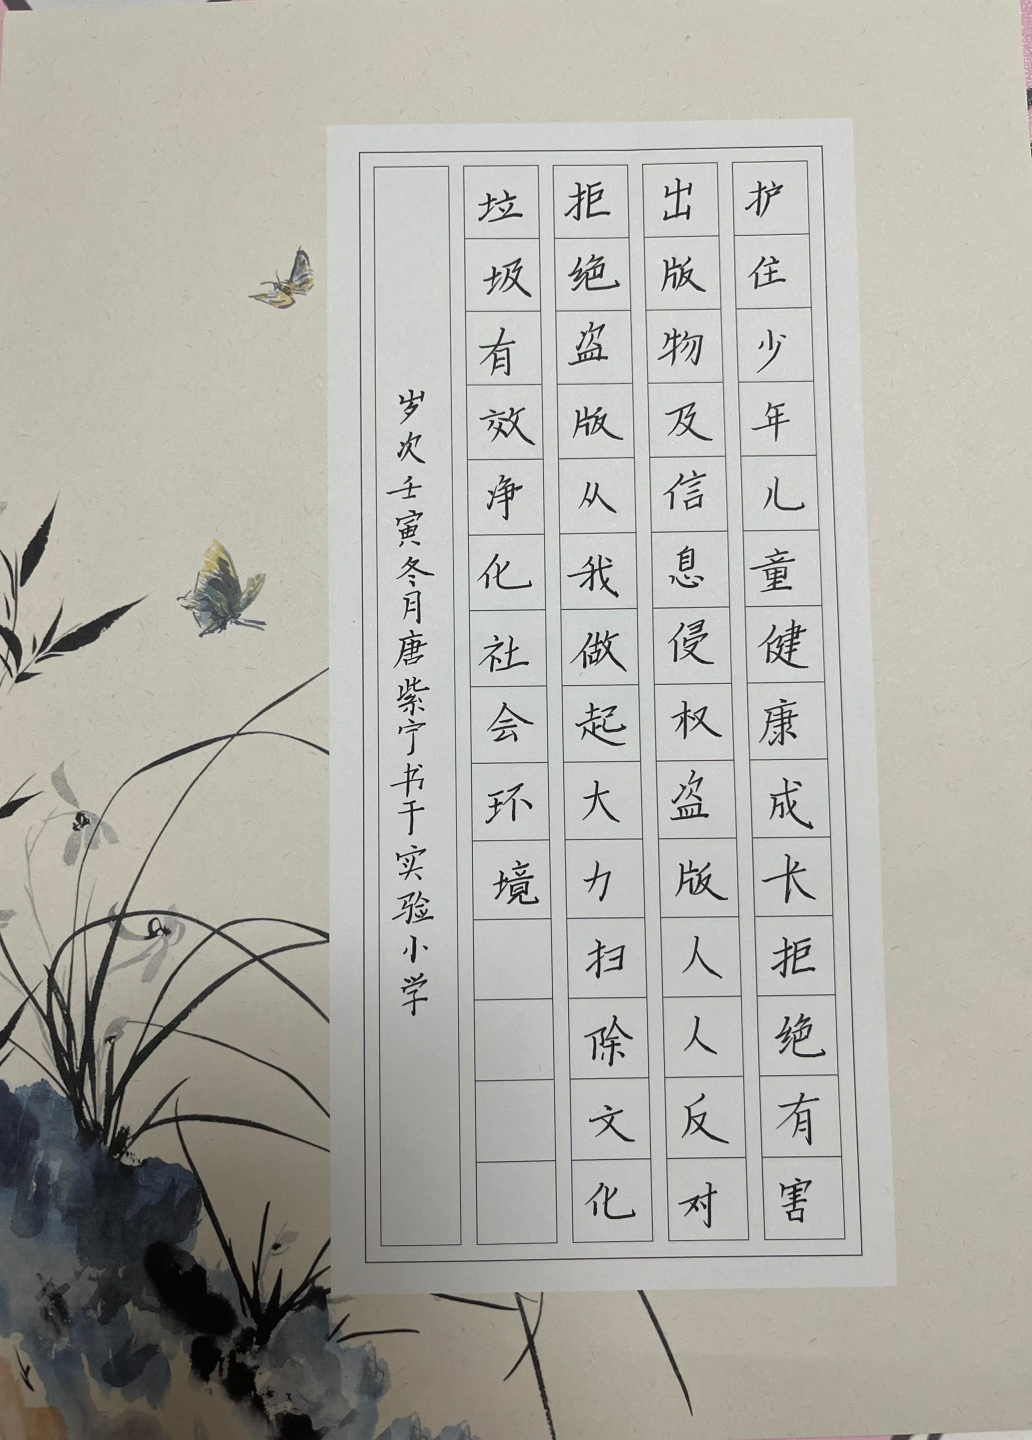 护住少年儿童健康成长拒绝有害
出版物及信息侵权盗版人人反对
拒绝盗版从我做起大力扫除文化
垃圾有效净化社会环境
岁次壬寅冬月唐紫宁书于实验小学